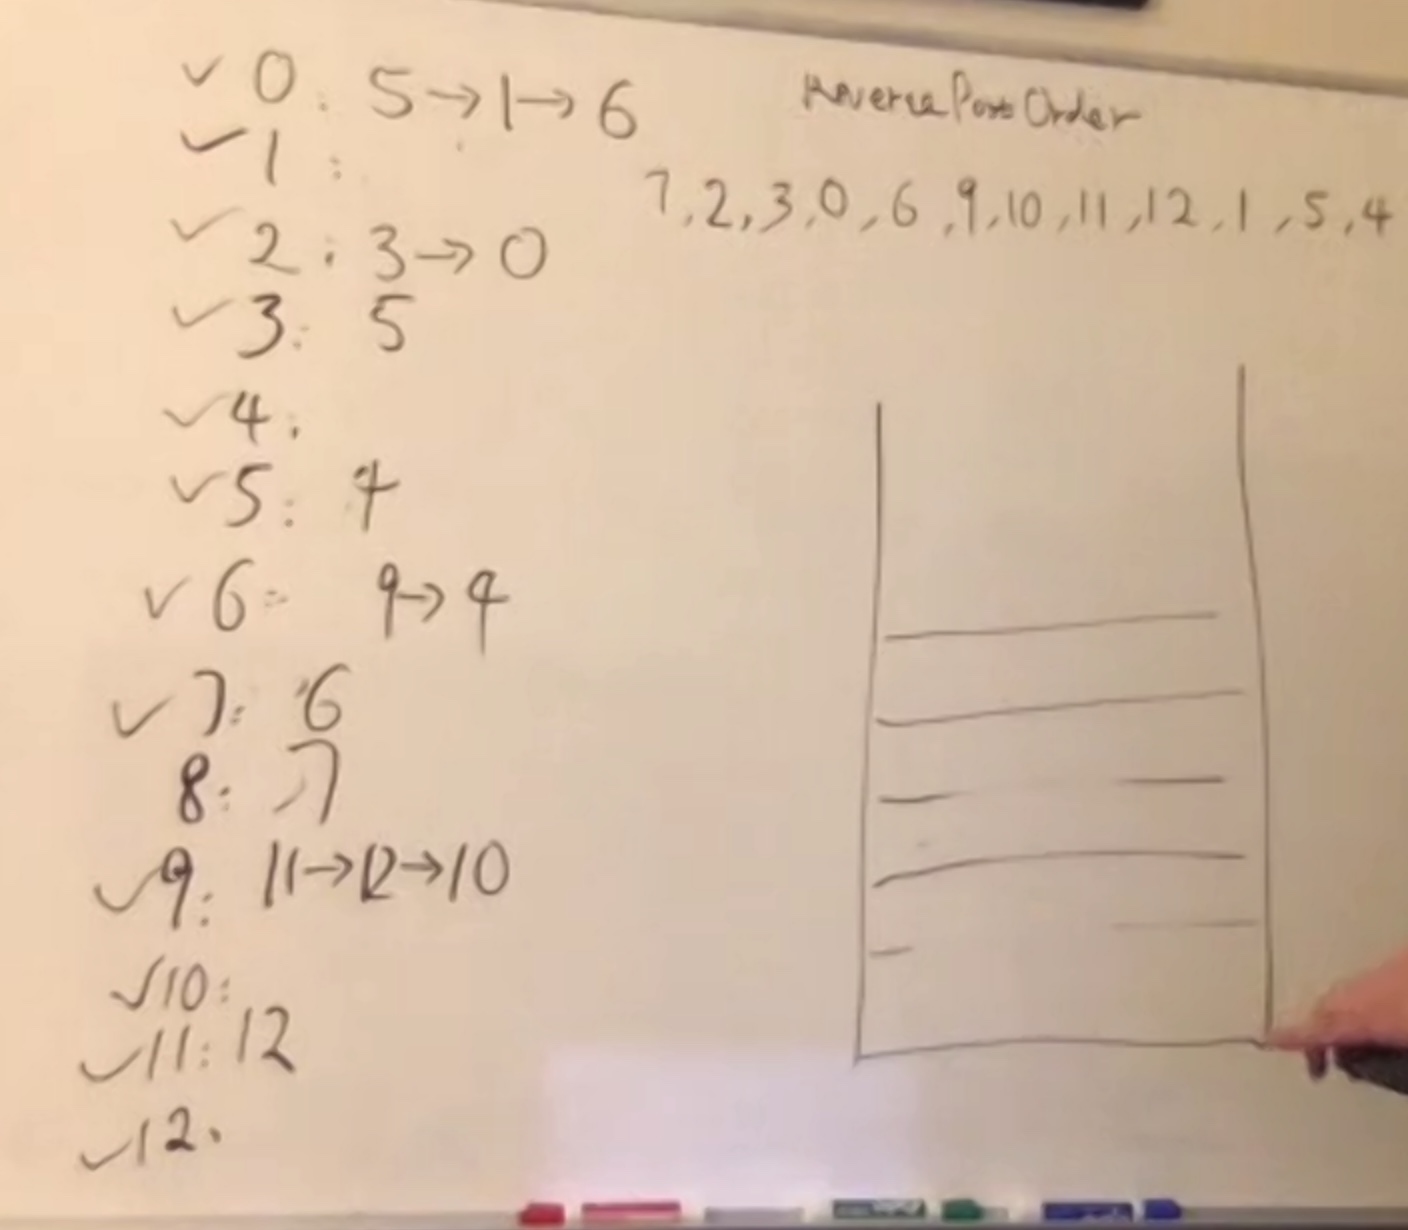 ✓ 0: 5→1→6
✓ 1:
✓ 2: 3→0
✓ 3: 5
✓ 4:
✓ 5: 4
✓ 6: 9→4
✓ 7: 6
8: 7
✓ 9: 11→12→10
✓ 10:
✓ 11: 12
✓ 12.
Reverse Post Order
7, 2, 3, 0, 6, 9, 10, 11, 12, 1, 5, 4